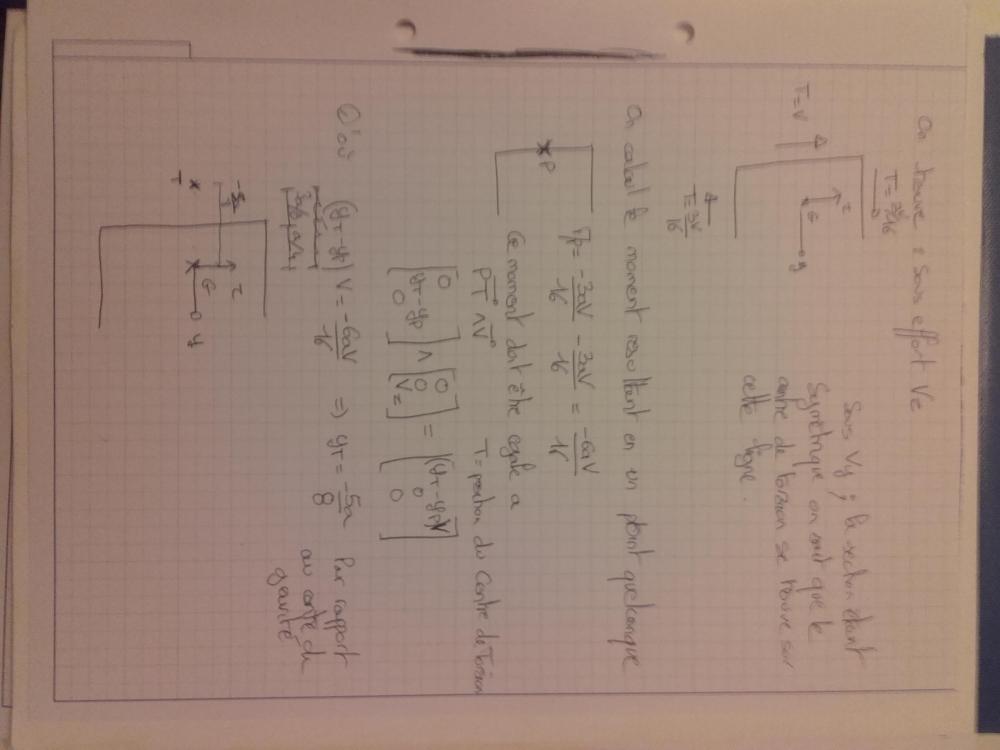 On trouve : Sous effort Vz
T = 3V/16
z
G
y
T = V
T = 3V/16
Sous Vy ; la section étant
Symétrique on sait que le
centre de torsion se trouve sur
cette ligne.
On calcul le moment résultant en un point quelconque
P
Mp = -3aV/16 - 3aV/16 = -6aV/16
Ce moment doit être egale a
PT ∧ V T = position du Centre de Torsion
(0, yT-yp, 0) ∧ (0, 0, Vz) = ((yT-yp)V, 0, 0)
D'où (yT-yp) V = -6aV/16 => yT = -5a/8 Par rapport
au centre de
gravité
T
z
G
y